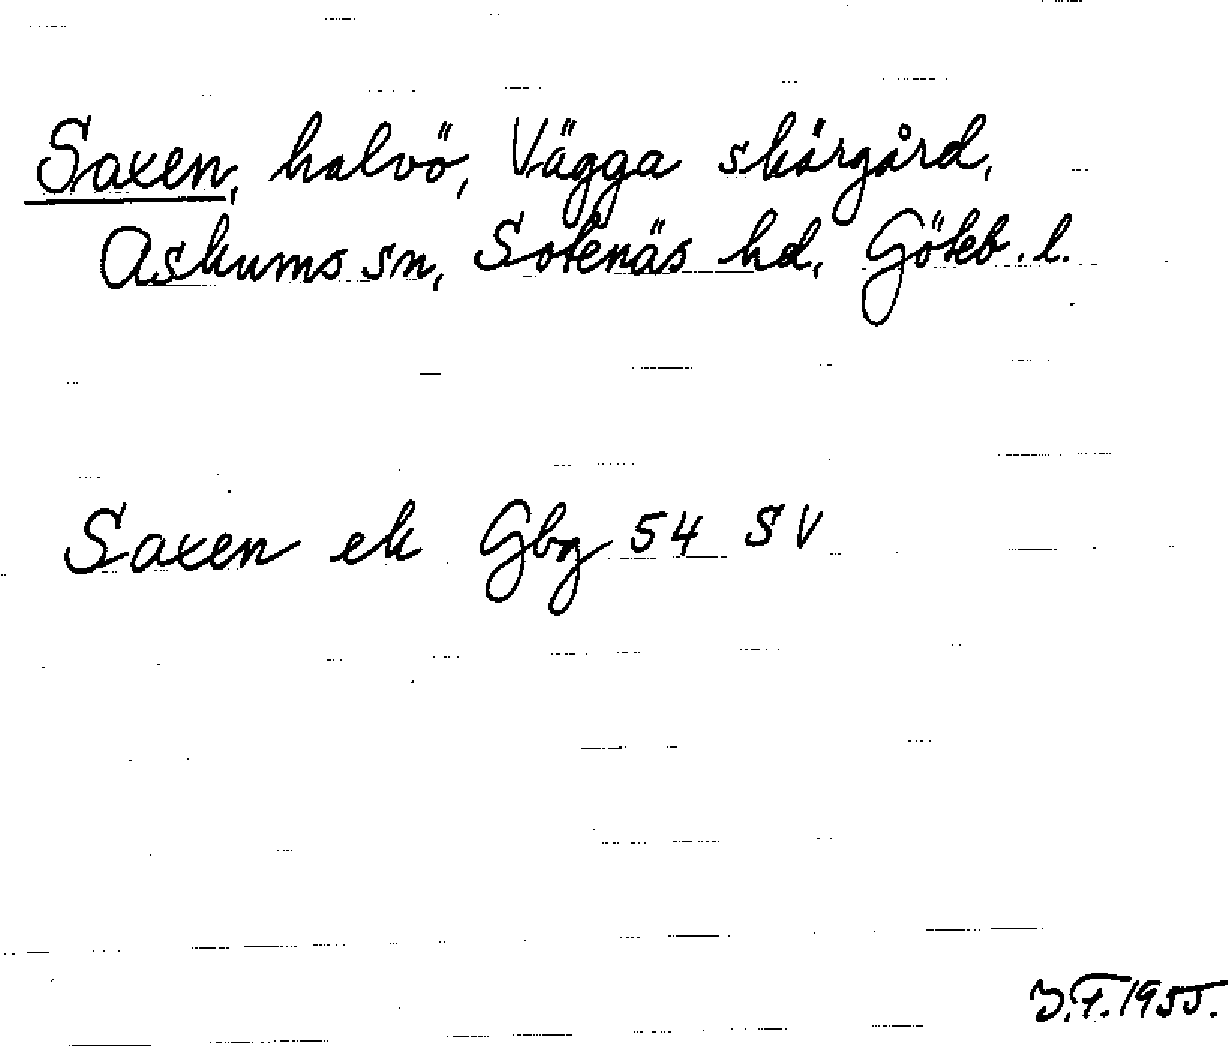 Saxen, halvö, Vägga skärgård,
Askums sn, Sotenäs hd, Göteb. l.
Saxen ek Gbg 54 SV
J.F. 1955.